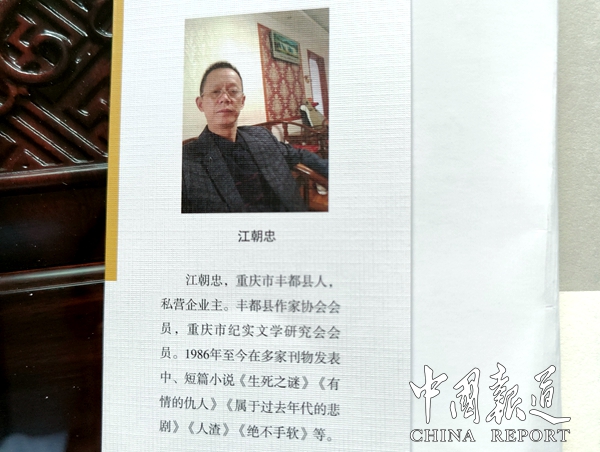 江朝忠
江朝忠，重庆市丰都县人，
私营企业主。丰都县作家协会会
员，重庆市纪实文学研究会会
员。1986年至今在多家刊物发表
中、短篇小说《生死之谜》《有
情的仇人》《属于过去年代的悲
剧》《人渣》《绝不手软》等。
中国报道
CHINA REPORT